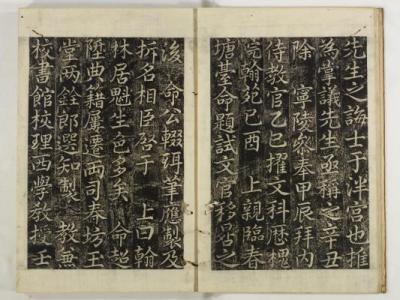 先生之誨士于泮宮也推
為掌議先生亟稱之辛丑
除　寧陵叅奉甲辰拜內
侍教官乙巳擢文科歷槐
院翰苑己酉　上親臨春
塘臺命題試文官移晷之
後　命公輟珥筆應製及
柝名相臣啓于　上曰翰
林居魁生色多矣　命超
陞典籍屢遷両司春坊玉
堂两銓郎選知製　教兼
校書館校理西學教授壬